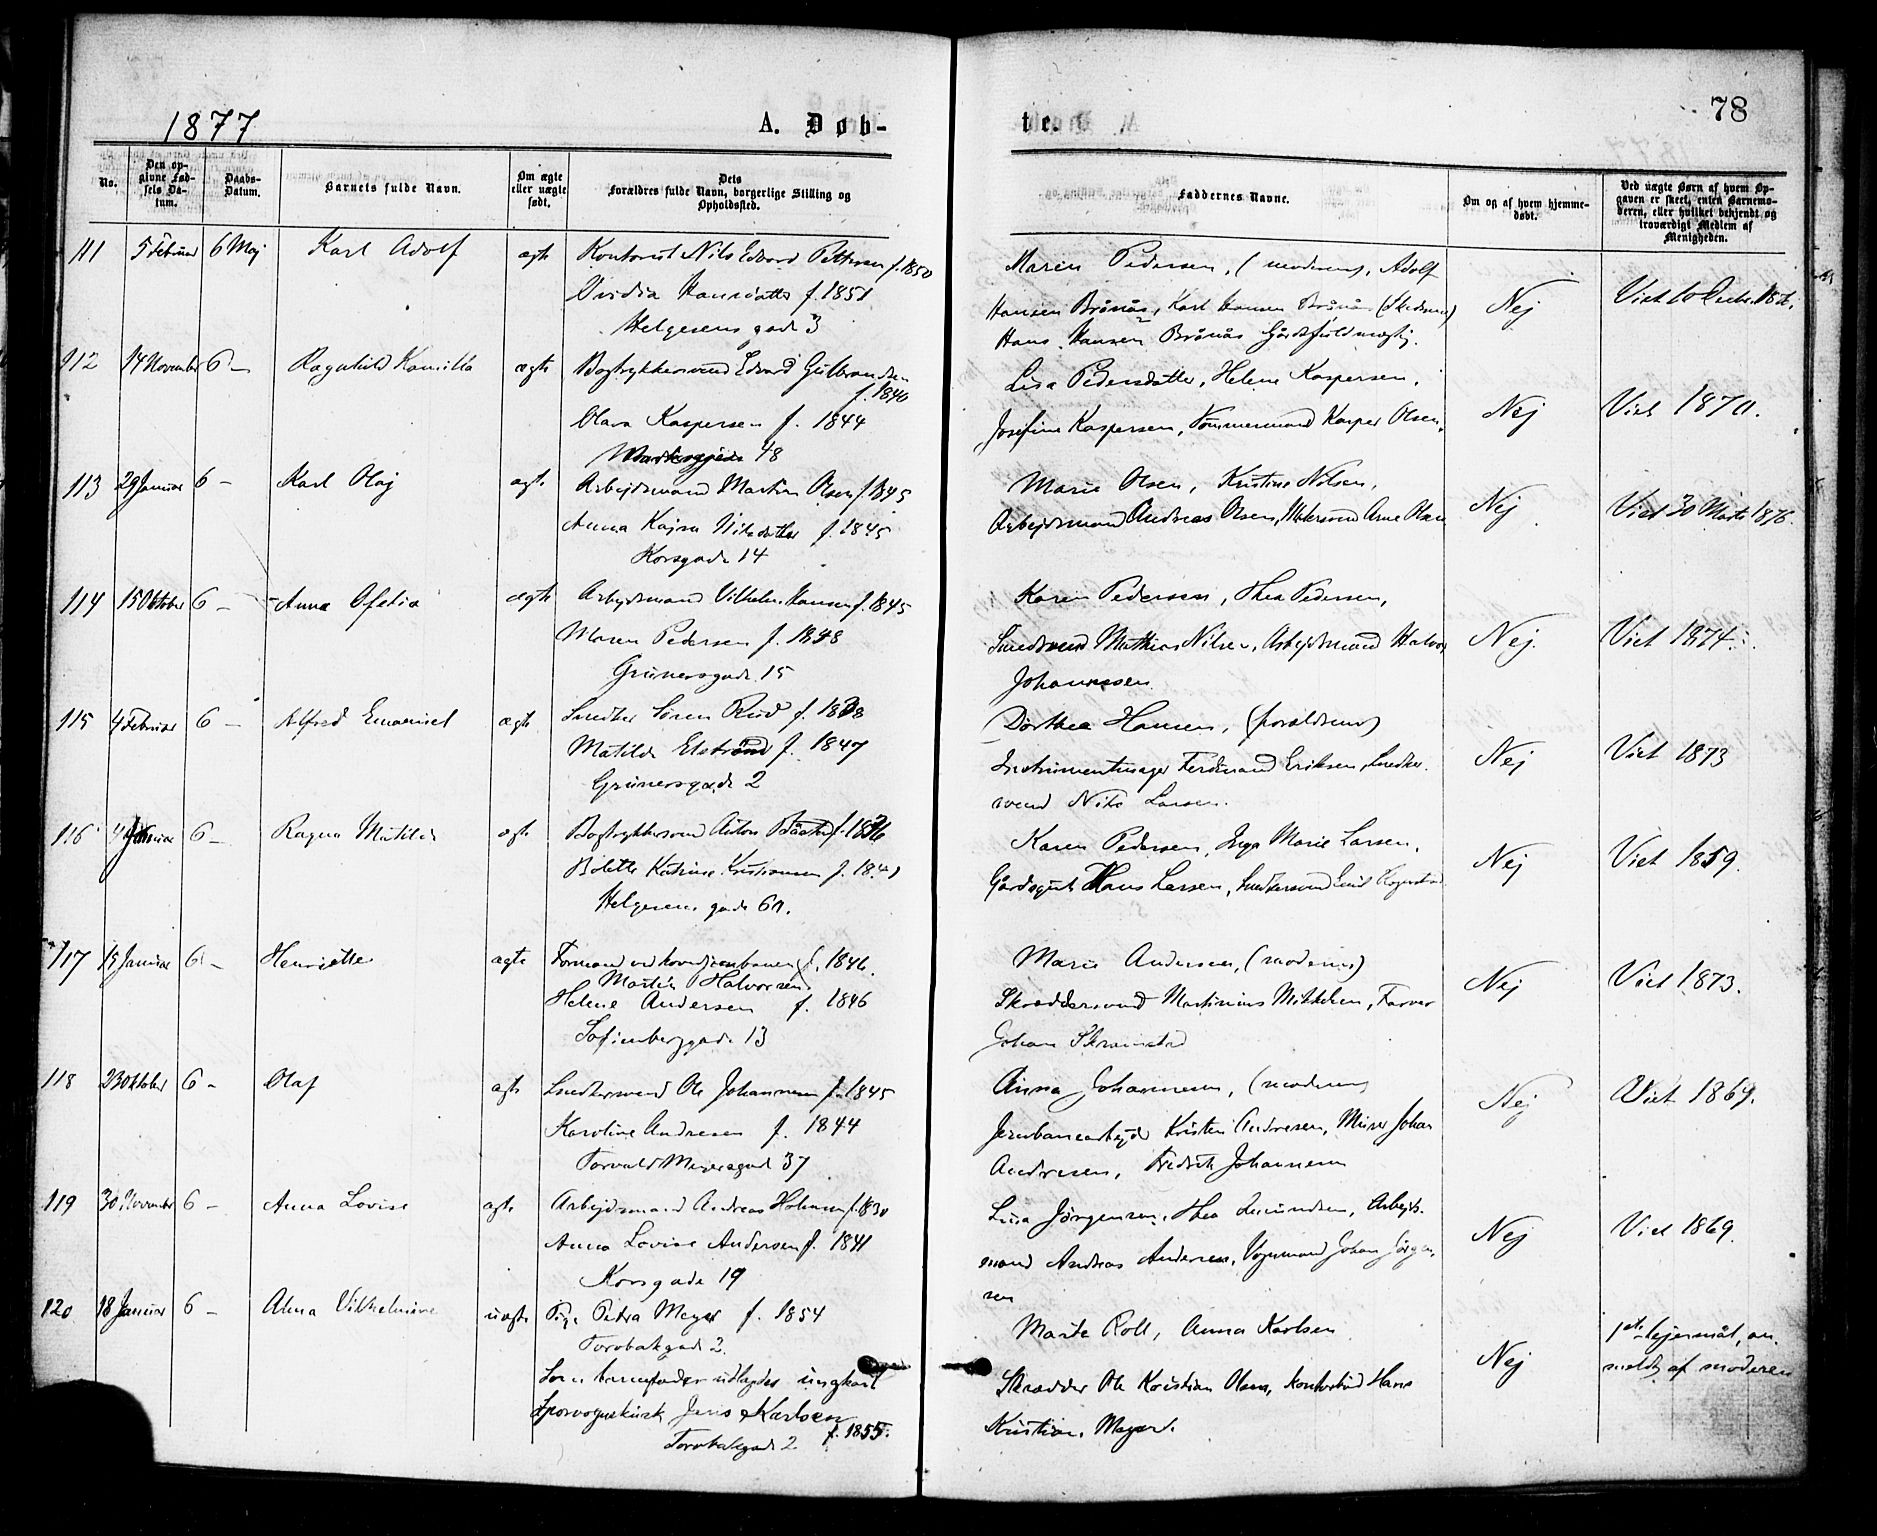 1877
A. Døb-
te.
78
No.
Den opgivne Fødsels Datum.
Daabs-Datum.
Barnets fulde Navn.
Om ægte eller uægte født.
Dets Forældres fulde Navn, borgerlige Stilling og Opholdssted.
Faddernes Navne.
Om og af hvem hjemmedøbt.
Ved uægte Børn af hvem Opgaven er skeet, enten Barnemoderen, eller hvilket bekjendt og troværdigt Medlem af Menigheden.
111 5 Februar 6 Maj Karl Adolf ægte Kontorist Nils Edvard Pettersen f. 1850
Ovidia Hansdatter f. 1851
Helgesens gade 3
Maren Pedersen, (moderen), Adolf
Hansen Brånås, Karl Hansen Brånås (Skedsmo)
Hans Hansen Brånås Gårdsfuldmægtig.
Nej
Viet 10 Decbr. 187
112 14 November 6 - Ragnhild Kamilla ægte Bogtrykkersvend Edvard Gulbrandsen
f. 1840
Olava Kaspersen f. 1844
Markvejen 48
Lisa Pedersdatter, Helene Kaspersen,
Josefine Kaspersen, Tømmermand Kasper Olsen.
Nej
Viet 1870.
113 29 Januar 6 - Karl Olaj ægte Arbejdsmand Martin Olsen f. 1845
Anna Kajsa Nilsdatter f. 1845
Korsgade 14
Marie Olsen, Kristine Nilsen,
Arbejdsmand Andreas Olsen, Arne Olsen
Nej
Viet 30 Marts 1876.
114 15 Oktober 6 - Anna Ofelia ægte Arbejdsmand Vilhelm Hansen f. 1845
Maren Pedersen f. 1848
Grünersgade 15
Karen Pedersen, Thea Pedersen,
Smedsvend Mathias Nilsen, Arbejdsmand Halvor
Johannessen
Nej.
Viet 1874.
115 4 Februar 6 - Alfred Emanuel ægte Snedker Søren Rud f. 1838
Matilde Elstrand f. 1847
Grünersgade 2
Dorthea Hansen, (forældrene)
Instrumentmager Ferdinand Eriksen, Snedker-
svend Nils Larsen.
Nej
Viet 1873
116 4 Januar 6 - Ragna Matilde ægte Bogtrykkersvend Anton f. 1836
Bolette Katrine Kristiansen f. 1841
Helgesens gade 60.
Karen Pedersen, Inga Marie Larsen,
Gårdsgut Hans Larsen, Snedkersvend Emil
Nej
Viet 1859.
117 15 Januar 6 - Henriette ægte Formand ved hovedjernbanen f. 1846.
Martin Halvorsen
Helene Andersen f. 1846
Sofienberggade 13
Marie Andersen, (moderen)
Skræddersvend Martinius Mikkelsen, Farver
Johan Skramstad
Nej
Viet 1873.
118 23 Oktober 6 - Olaf ægte Snedkersvend Ole Johannesen f. 1845
Karoline Andresen f. 1844
Torvald Meyersgade 37
Anna Johannesen, (moderen)
Jernbanearbejder Kristen Andresen, Murer Johan
Andresen, Fredrik Johannesen
Nej
Viet 1869.
119 30 November 6 - Anna Lovise ægte Arbejdsmand Andreas Johansen f. 1830
Anna Lovise Andersen f. 1841
Korsgade 19
Lina Jørgensen, Thea Amundsen, Arbejds-
mand Andreas Andersen, Vognmand Johan Jørgen-
sen
Nej
Viet 1869.
120 18 Januar 6 - Alma Vilhelmine uægte Pige Petra Meyer f. 1854
Torvbakgade 2.
Som barnefader udlagdes ungkarl
Sporvognskusk Jens Karlsen
f. 1855.
Torvbakgade 2
Marte Roll, Anna Karlsen
Skrædder Ole Kristian Olsen, kontorbud Hans
Kristian Meyer.
Nej
1ste lejermål, an-
meldt af moderen